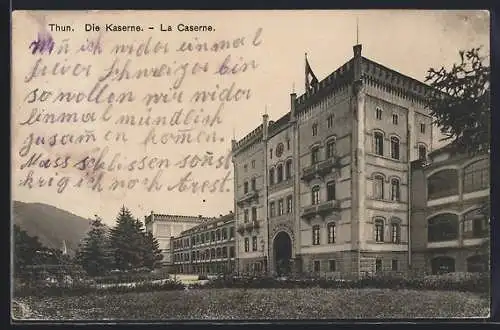 Thun. Die Kaserne. – La Caserne.
Nun ich wider einmal
freier Schweizer bin
so wollen wir wider
einmal mündlich
zusam̄en kom̄en.
Muss schliessen sonst
krig ich noch Arest.